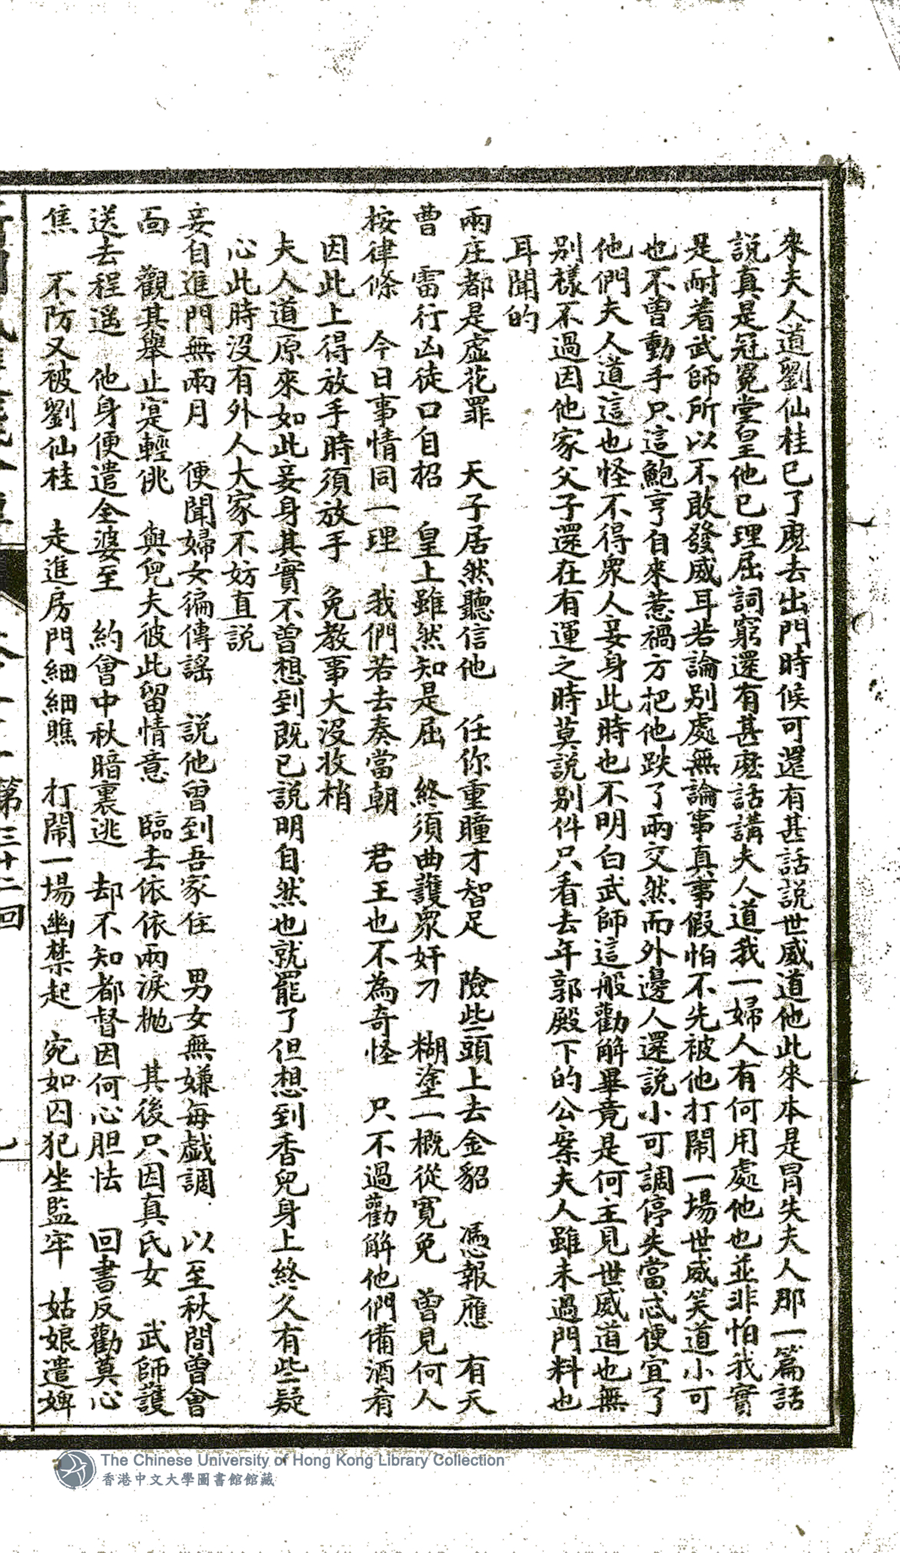 來夫人道劉仙桂已了麽去出門時候可還有甚話説世威道他此來本是冒失夫人那一篇話
説真是冠冕堂皇他已理屈詞窮還有甚麽話講夫人道我一婦人有何用處他也並非怕我實
是耐着武師所以不敢發威耳若論別處無論事真事假怕不先被他打鬧一場世威笑道小可
也不曽動手只這鮑亨自來惹禍方把他跌了兩交然而外邊人還説小可調停失當忒便宜了
他們夫人道這也怪不得衆人妾身此時也不明白武師這般勸解畢竟是何主見世威道也無
別樣不過因他家父子還在有運之時莫説别件只看去年郭殿下的公案夫人雖未過門料也
耳聞的
兩庄都是虛花罪 天子居然聽信他 任你重瞳才智足 險些頭上去金貂 憑報應 有天
曹 雷行凶徒口自招 皇上雖然知是屈 終須曲護衆奸刁 糊塗一概從寛免 曽見何人
按律條 今日事情同一理 我們若去奏當朝 君王也不為奇怪 只不過勸解他們備酒肴
因此上得放手時須放手 免教事大沒收梢
夫人道原來如此妾身其實不曽想到既已説明自然也就罷了但想到香兒身上終久有些疑
心此時沒有外人大家不妨直説
妾自進門無兩月 便聞婦女徧傳謡 説他曽到吾家住 男女無嫌每戯調 以至秋間曽會
面 觀其舉止寔輕佻 與兒夫彼此留情意 臨去依依兩淚抛 其後只因真氏女 武師護
送去程遥 他身便遣全婆至 約會中秋暗裏逃 却不知都督因何心胆怯 回書反勸莫心
焦 不防又被劉仙桂 走進房門細細瞧 打鬧一場幽禁起 宛如囚犯坐監牢 姑娘遣婢
第三十二回
The Chinese University of Hong Kong Library Collection
香港中文大學圖書館館藏